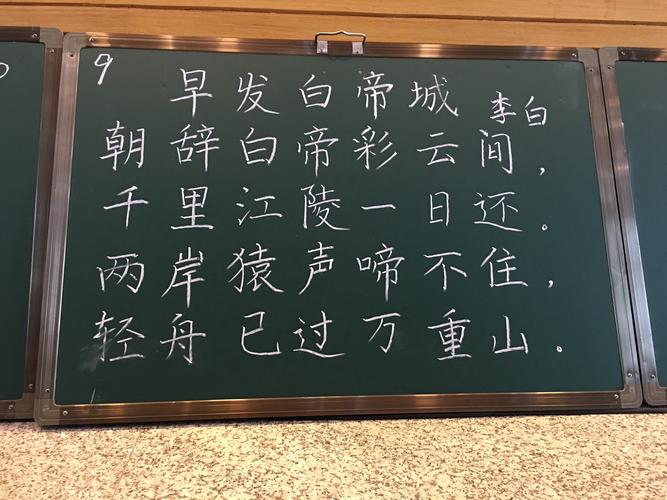 9
早发白帝城 李白
朝辞白帝彩云间，
千里江陵一日还。
两岸猿声啼不住，
轻舟已过万重山。